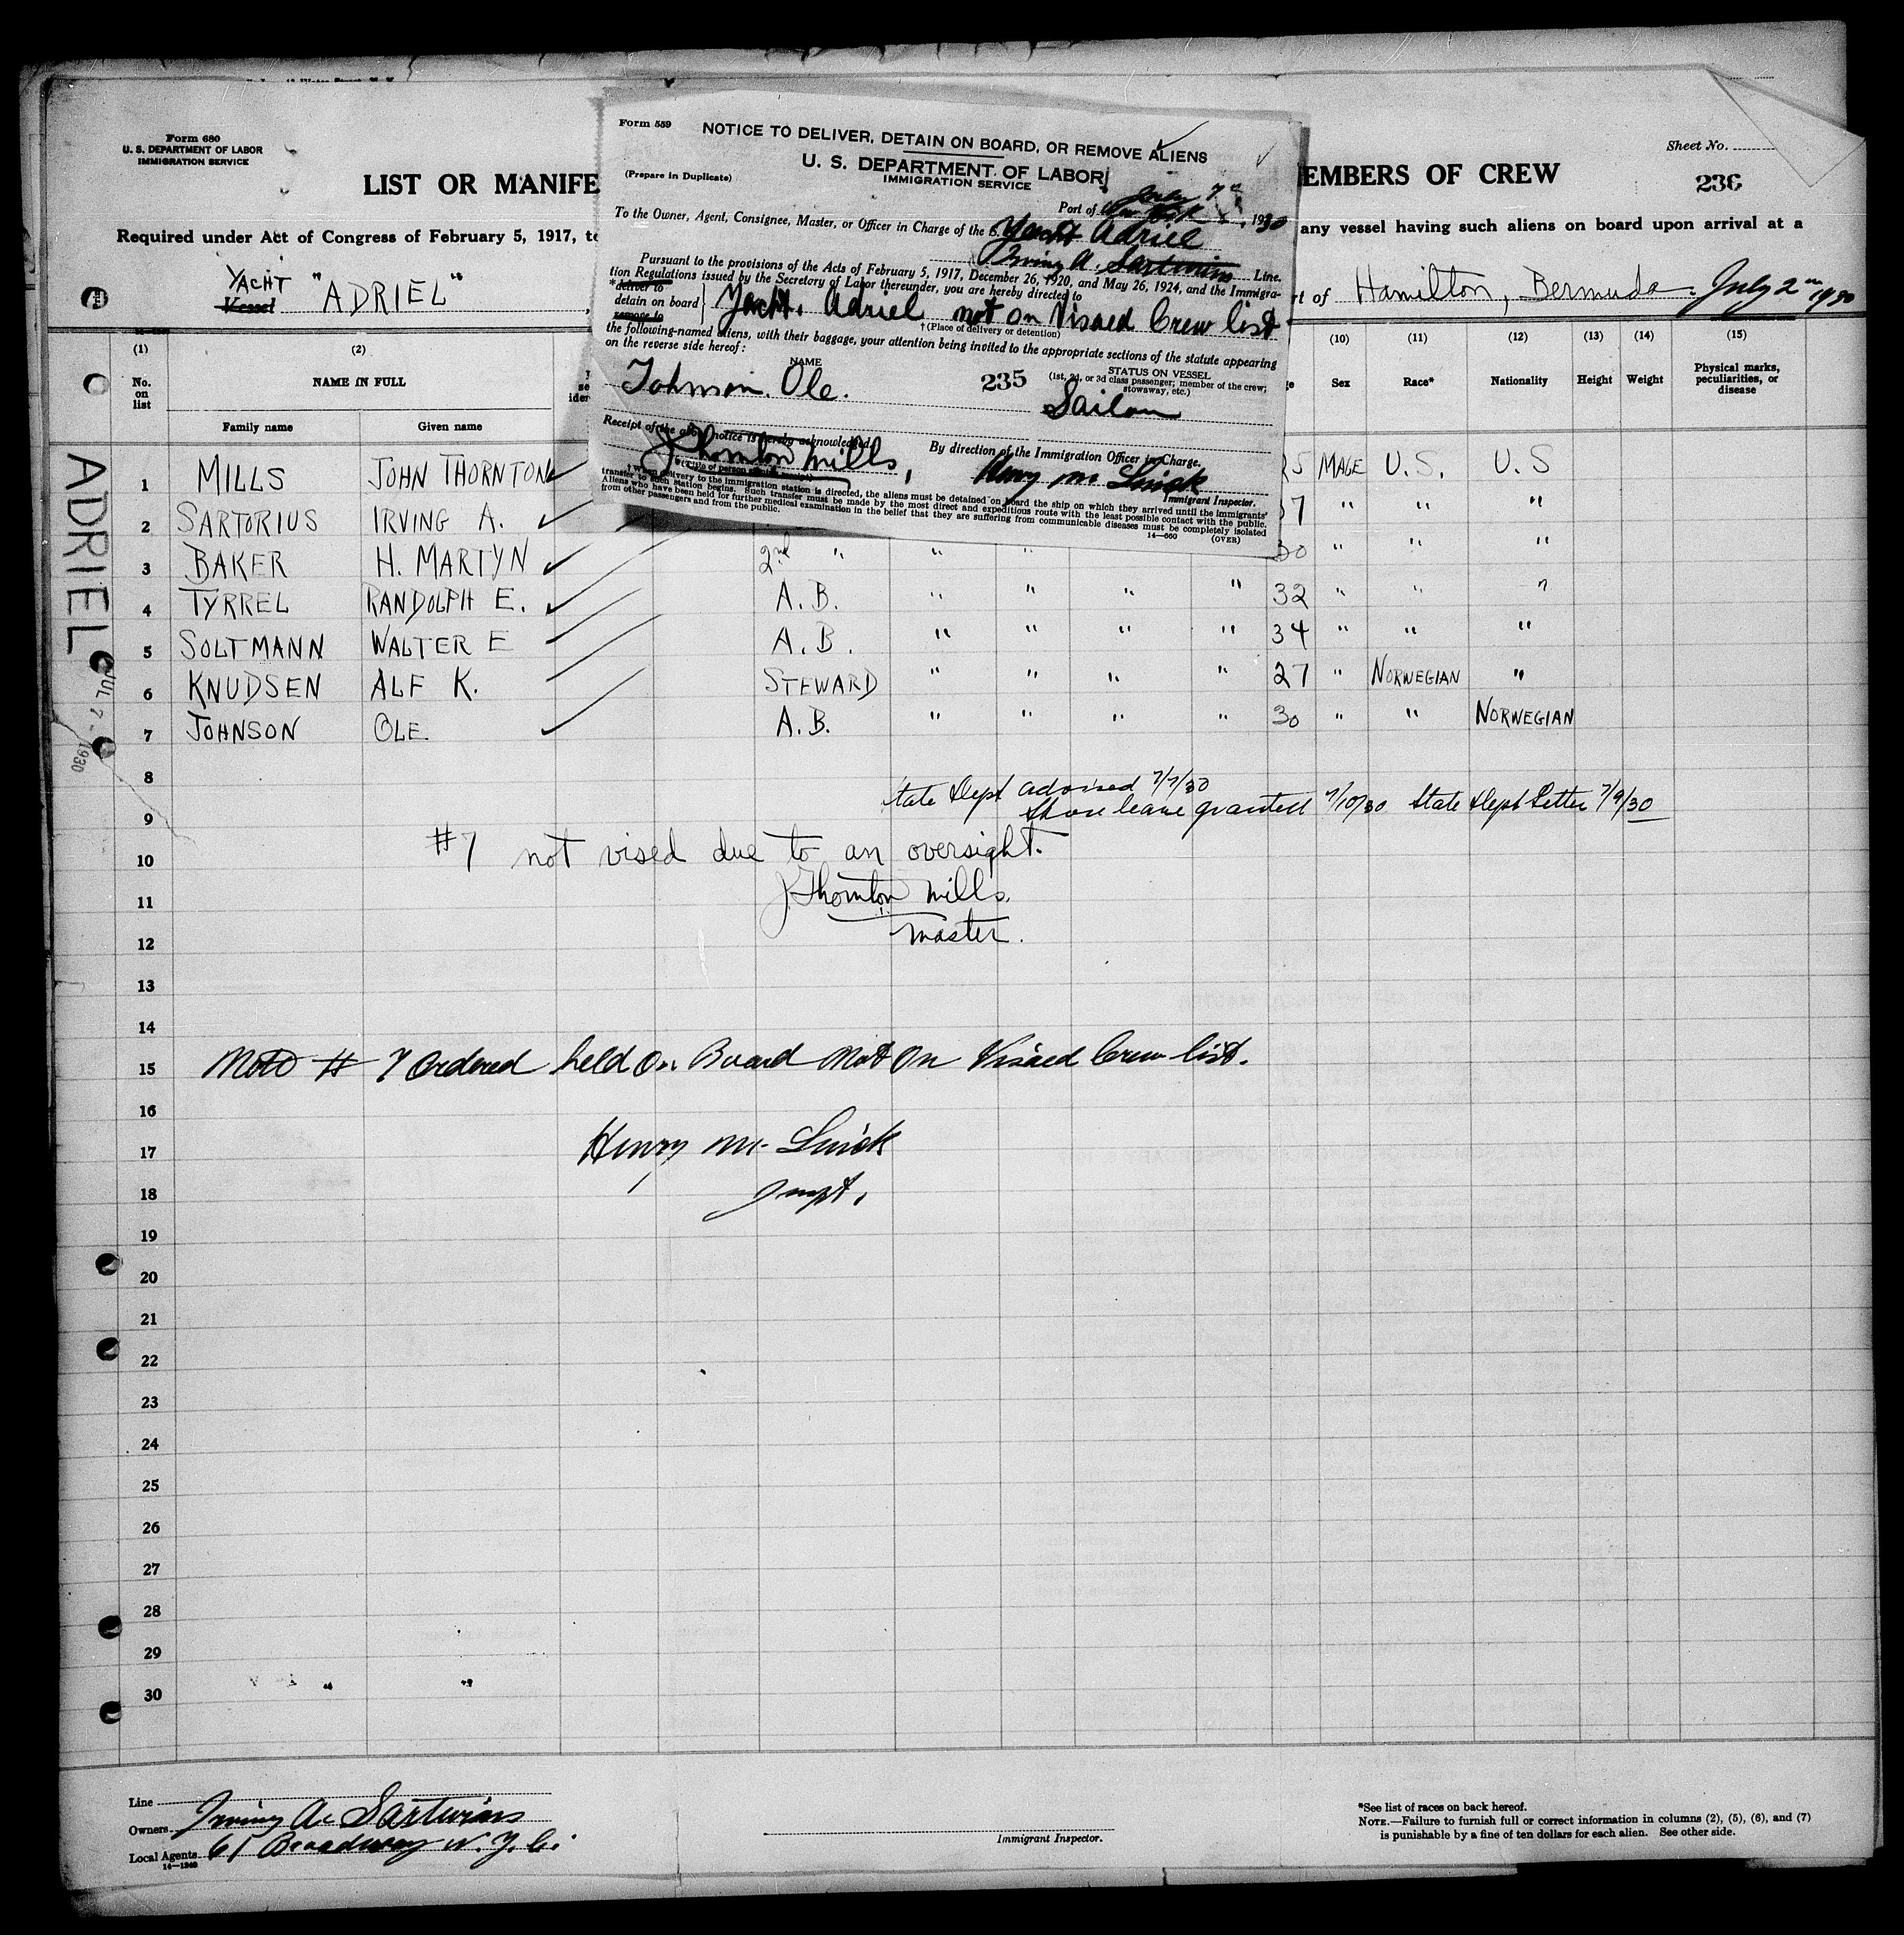 Form 680
U. S. DEPARTMENT OF LABOR
IMMIGRATION SERVICE
LIST OR MANIFE
EMBERS OF CREW
Sheet No.
236
Required under Act of Congress of February 5, 1917, to
any vessel having such aliens on board upon arrival at a
YACHT
Vessel "ADRIEL"
rt of Hamilton, Bermuda. July 2nd 1930
Form 559
NOTICE TO DELIVER, DETAIN ON BOARD, OR REMOVE ALIENS
U. S. DEPARTMENT OF LABOR
(Prepare in Duplicate)
IMMIGRATION SERVICE
Port of New York July 7th, 1930
To the Owner, Agent, Consignee, Master, or Officer in Charge of the S. Yacht Adriel
Irving A. Sartorius Line.
Pursuant to the provisions of the Acts of February 5, 1917, December 26, 1920, and May 26, 1924, and the Immigra-
tion Regulations issued by the Secretary of Labor thereunder, you are hereby directed to
*deliver to
detain on board Yacht. Adriel not on Visaed Crew list
remove to
†(Place of delivery or detention)
the following-named aliens, with their baggage, your attention being invited to the appropriate sections of the statute appearing
on the reverse side hereof:
NAME
STATUS ON VESSEL
(1st, 2d, or 3d class passenger; member of the crew;
stowaway, etc.)
Johnson. Ole. 235 Sailor
Receipt of the above notice is hereby acknowledged.
By direction of the Immigration Officer in Charge.
J Thornton Mills,
Henry M.
Immigrant Inspector.
†When delivery to the immigration station is directed, the aliens must be detained on board the ship on which they arrived until the immigrants'
transfer to such station begins. Such transfer must be made by the most direct and expeditious route with the least possible contact with the public.
Aliens who have been held for further medical examination in the belief that they are suffering from communicable diseases must be completely isolated
from other passengers and from the public.
14—660 (OVER)
(1) (2) (10) (11) (12) (13) (14) (15)
No. on list
NAME IN FULL
Family name Given name
Sex Race* Nationality Height Weight Physical marks, peculiarities, or disease
1 MILLS JOHN THORNTON 25 MALE U.S. U.S
2 SARTORIUS IRVING A. 37 " " "
3 BAKER H. MARTYN 2nd " " " 30 " " "
4 TYRREL RANDOLPH E. A.B. " " " " 32 " " "
5 SOLTMANN WALTER E A.B. " " " " 34 " " "
6 KNUDSEN ALF K. STEWARD " " " " 27 " NORWEGIAN "
7 JOHNSON OLE A.B. " " " " 30 " " NORWEGIAN
ADRIEL
JUL 7 - 1930
8
State Dept advised 7/7/30
9
Shore leave granted 7/10/30 State Dept Letter 7/9/30
10 #7 not vised due to an oversight.
11 J. Thornton Mills.
12 Master.
13
14
15 Note # 7 Ordered held On Board Not On Visaed Crew list.
16
17 Henry M.
18 Inspt.
19
20
21
22
23
24
25
26
27
28
29
30
Line
Owners Irving A. Sartorius
Local Agents 61 Broadway N. Y. C.
14—1240
Immigrant Inspector.
*See list of races on back hereof.
NOTE.—Failure to furnish full or correct information in columns (2), (5), (6), and (7)
is punishable by a fine of ten dollars for each alien. See other side.